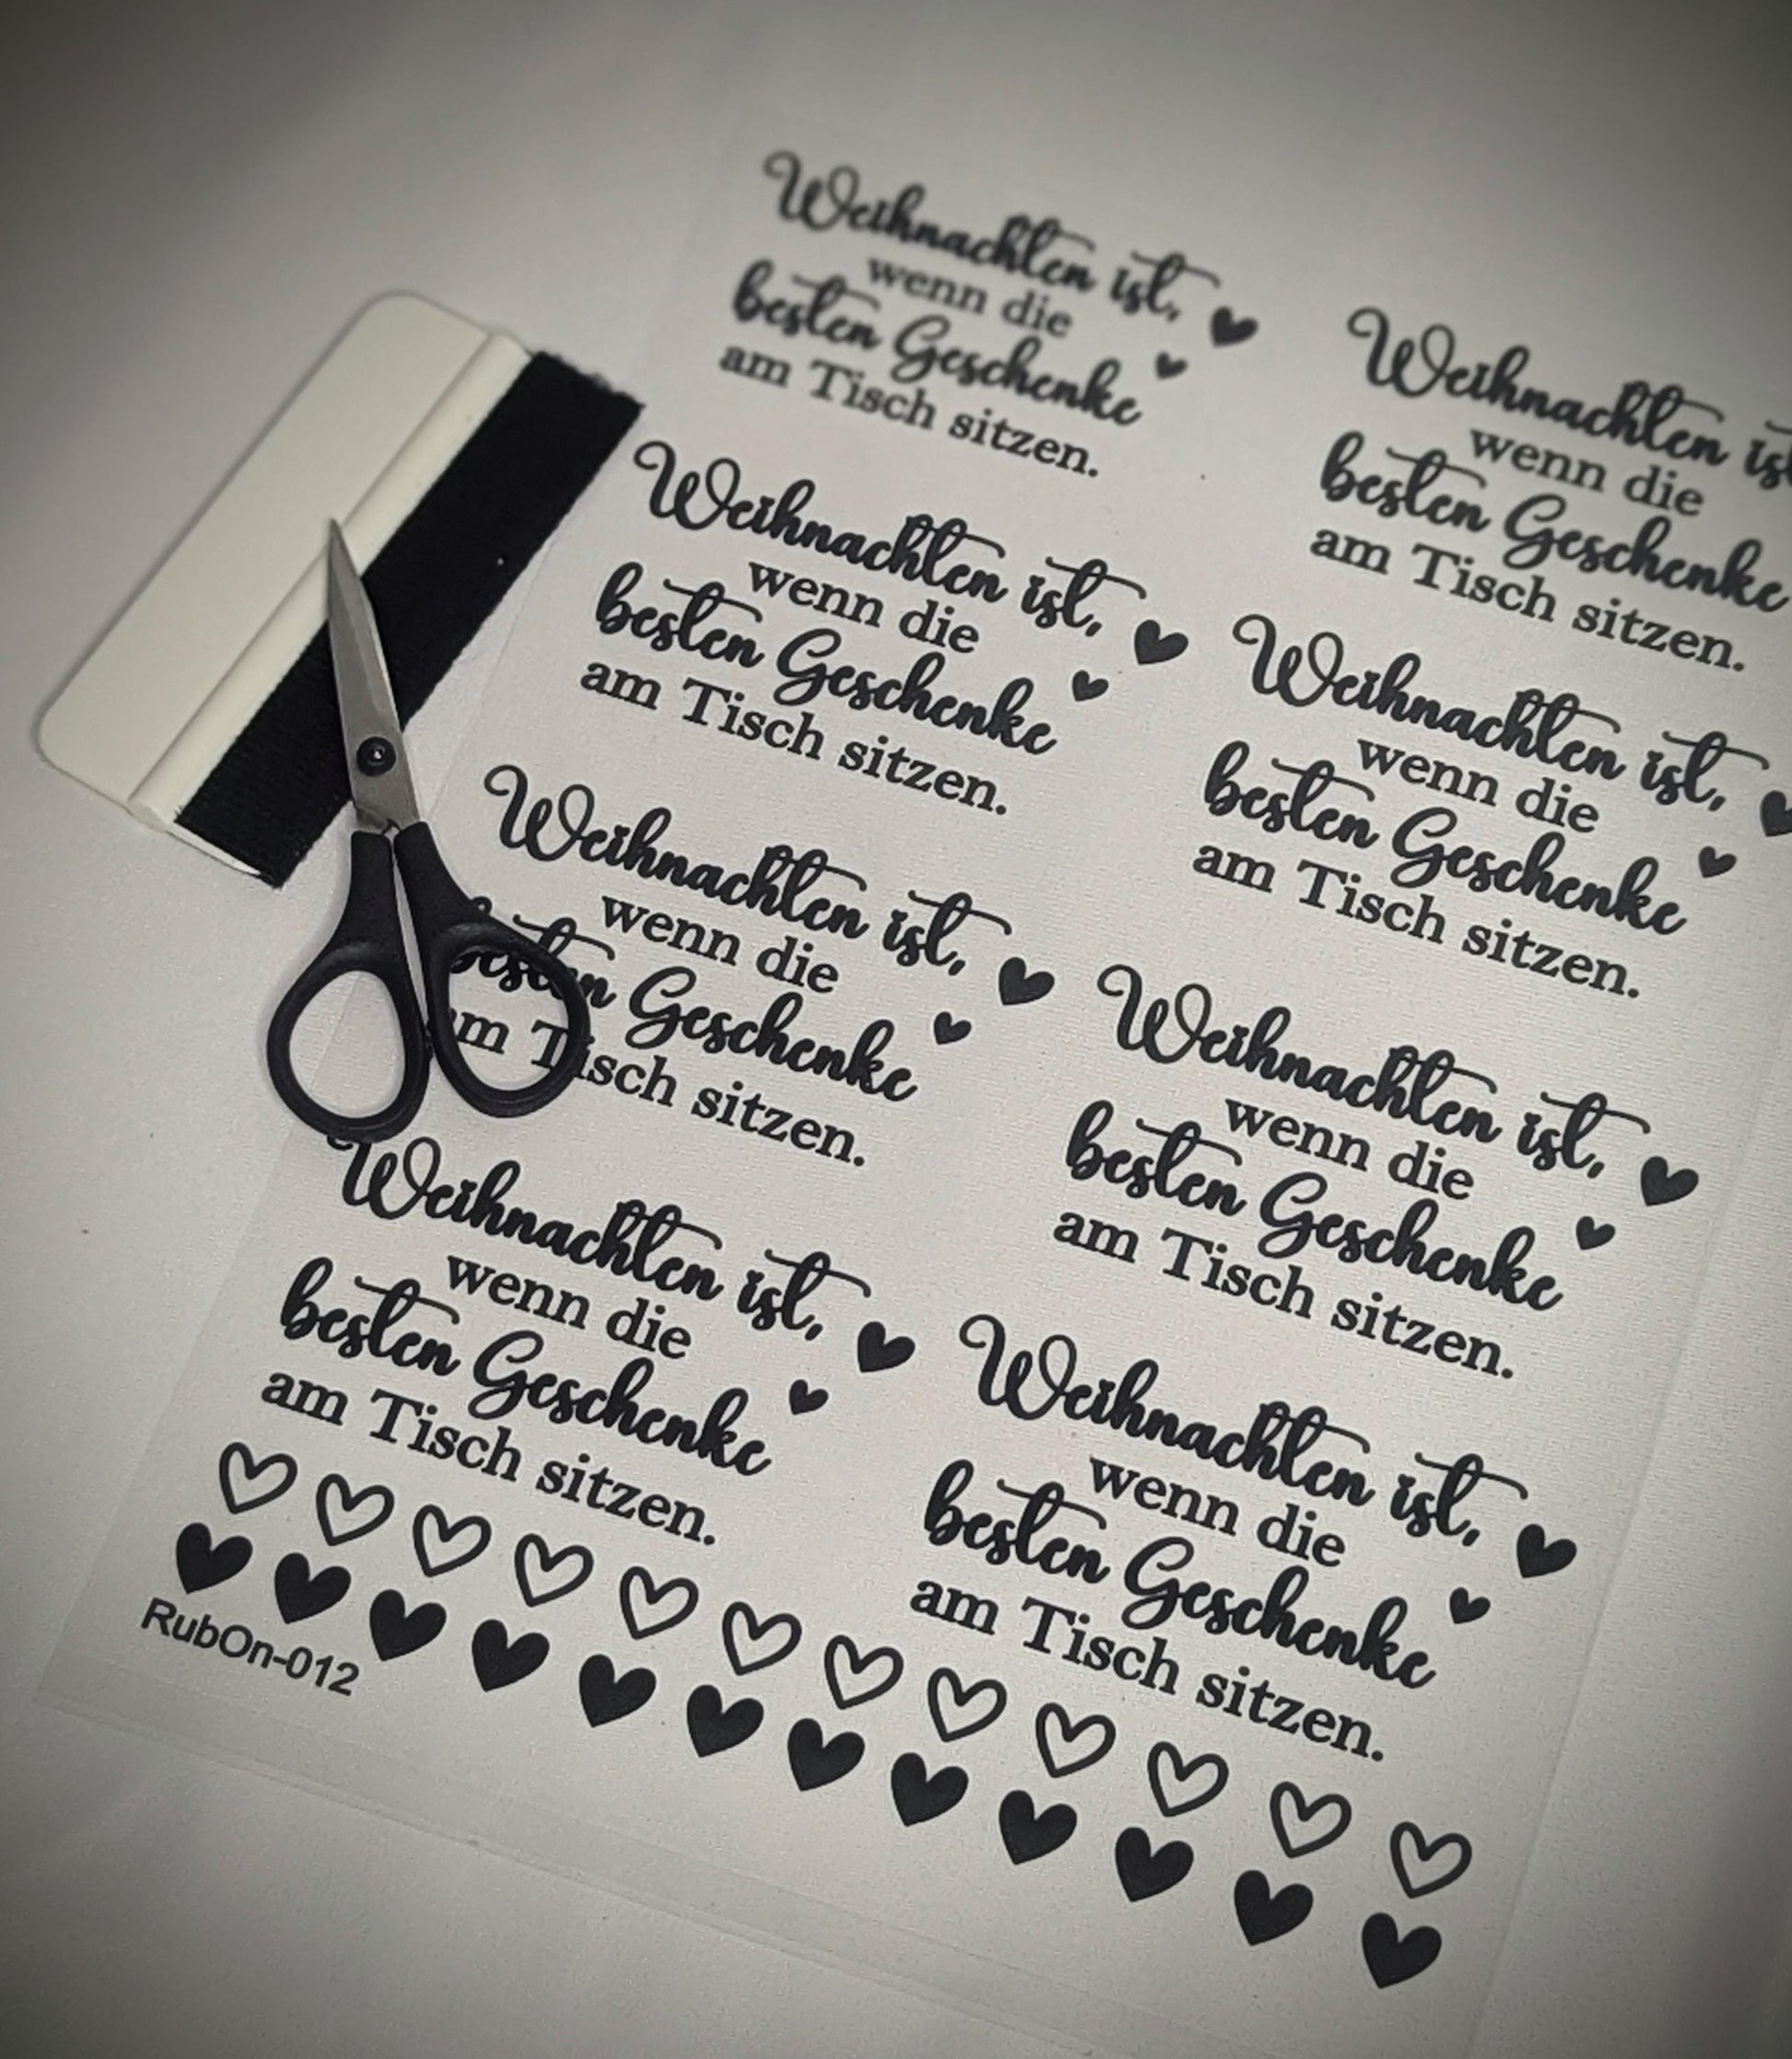 Weihnachten ist,
wenn die
besten Geschenke
am Tisch sitzen.
Weihnachten ist
wenn die
besten Geschenke
am Tisch sitzen.
Weihnachten ist,
wenn die
besten Geschenke
am Tisch sitzen.
Weihnachten ist,
wenn die
besten Geschenke
am Tisch sitzen.
Weihnachten ist,
wenn die
besten Geschenke
am Tisch sitzen.
Weihnachten ist,
wenn die
besten Geschenke
am Tisch sitzen.
Weihnachten ist,
wenn die
besten Geschenke
am Tisch sitzen.
Weihnachten ist,
wenn die
besten Geschenke
am Tisch sitzen.
RubOn-012